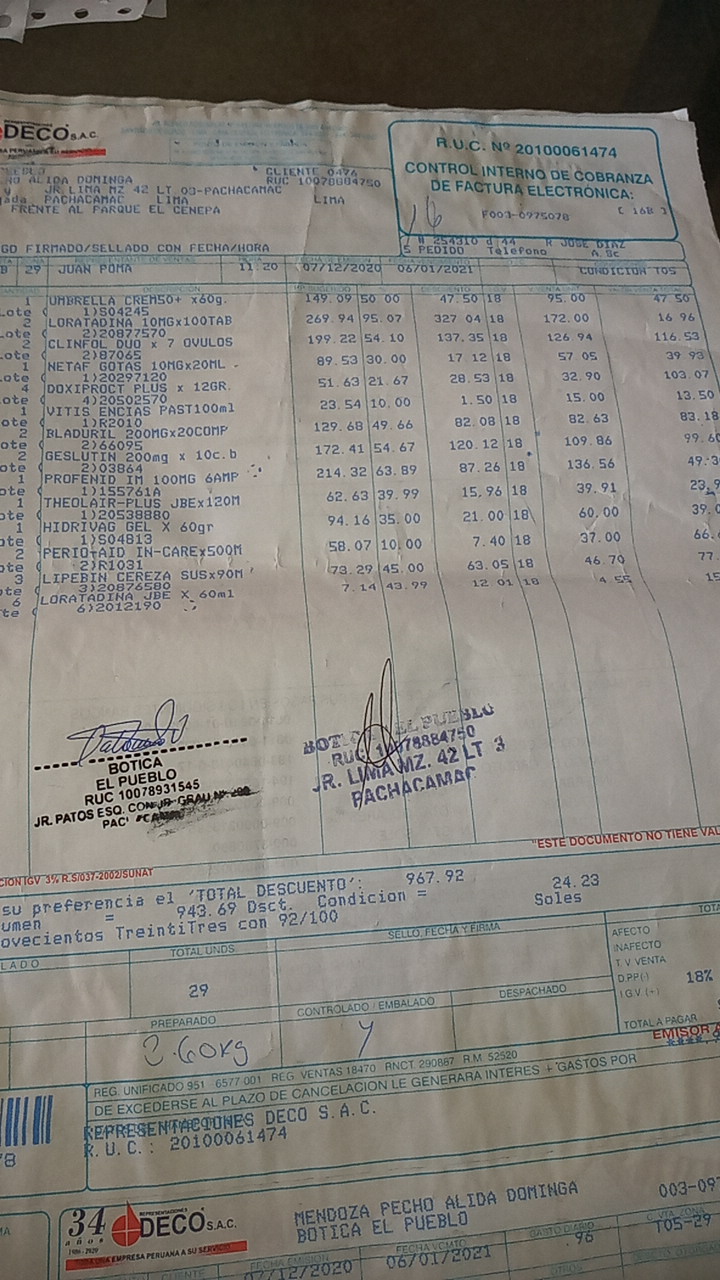 DECO S.A.C.
R.U.C. Nº 20100061474
CONTROL INTERNO DE COBRANZA
DE FACTURA ELECTRÓNICA:
F003-0975078 [ 16B ]
16
ALIDA DOMINGA CLIENTE 0476
RUC 10078884750
JR. LIMA MZ 42 LT 03-PACHACAMAC
PACHACAMAC LIMA LIMA
FRENTE AL PARQUE EL CENEPA
GO FIRMADO/SELLADO CON FECHA/HORA
PEDIDO Telefono
JOSE DIAZ
29 JUAN POMA 11.20 07/12/2020 06/01/2021
DESCRIPCION
1 UMBRELLA CREM50+ x60g. 149.09 50.00 47.50 18 95.00 47.50
1)S04245
2 LORATADINA 10MGx100TAB 269.94 95.07 327.04 18 172.00 16.96
2)20877570
2 CLINFOL DUO x 7 OVULOS 199.22 54.10 137.35 18 126.94 116.53
2)87065
1 NETAF GOTAS 10MGx20ML 89.53 30.00 17.12 18 57.05 39.93
1)20297120
4 DOXIPROCT PLUS x 12GR. 51.63 21.67 28.53 18 32.90 103.07
4)20502570
1 VITIS ENCIAS PAST100ml 23.54 10.00 1.50 18 15.00 13.50
1)R2010
2 BLADURIL 200MGx20COMP 129.68 49.66 82.08 18 82.63 83.18
2)66095
2 GESLUTIN 200mg x 10c.b 172.41 54.67 120.12 18 109.86
2)03864
1 PROFENID IM 100MG 6AMP 214.32 63.89 87.26 18 136.56
1)155761A
1 THEOLAIR-PLUS JBEx120M 62.63 39.99 15.96 18 39.91
1)20538880
1 HIDRIVAG GEL X 60gr 94.16 35.00 21.00 18 60.00
1)S04813
2 PERIO-AID IN-CAREx500M 58.07 10.00 7.40 18 37.00
2)R1031
3 LIPEBIN CEREZA SUSx90M 73.29 45.00 63.05 18 46.70
3)20876580
6 LORATADINA JBE X 60ml 7.14 43.99 12.01 18 4.55
6)2012190
BOTICA
EL PUEBLO
RUC 10078931545
JR. PATOS ESQ. CON JR GRAU Nº
BOTICA EL PUEBLO
RUC 10078884750
JR. LIMA MZ. 42 LT 3
PACHACAMAC
"ESTE DOCUMENTO NO TIENE
IGV 3% R.S/037-2002/SUNAT
su preferencia el 'TOTAL DESCUENTO': 967.92
umen = 943.69 Dsct. Condicion = 24.23
ovecientos TreintiTres con 92/100 Soles
LADO
TOTAL UNDS
29
SELLO, FECHA Y FIRMA
AFECTO
INAFECTO
T. V. VENTA
D.PP(-)
I.G.V (+) 18%
TOTAL A PAGAR
PREPARADO
2.60kg
CONTROLADO / EMBALADO
DESPACHADO
EMISOR
REG. UNIFICADO 951 6577 001 REG. VENTAS 18470 RNCT. 290887 R.M. 52520
DE EXCEDERSE AL PLAZO DE CANCELACION LE GENERARA INTERES + GASTOS POR
REPRESENTACIONES DECO S.A.C.
R.U.C.: 20100061474
34 años
1986 - 2020
REPRESENTACIONES
DECO S.A.C.
UNA EMPRESA PERUANA A SU SERVICIO
MENDOZA PECHO ALIDA DOMINGA
BOTICA EL PUEBLO
003-097
FECHA EMISION
07/12/2020
FECHA VCMTO
06/01/2021
GASTO DIARIO
.96
T05-29